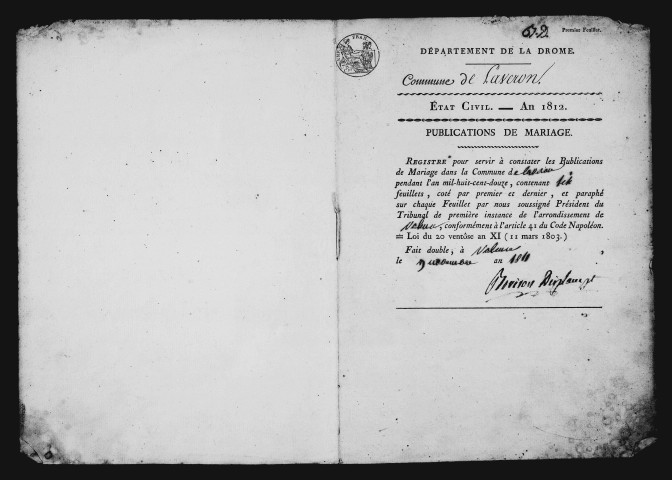 Premier Feuillet.
DÉPARTEMENT DE LA DROME.
Commune de Laveron
ÉTAT CIVIL. — AN 1812.
PUBLICATIONS DE MARIAGE.
REGISTRE pour servir à constater les Publications
de Mariage dans la Commune de Laveron
pendant l'an mil-huit-cent-douze, contenant six
feuillets, coté par premier et dernier, et paraphé
sur chaque Feuillet par nous soussigné Président du
Tribunal de première instance de l'arrondissement de
Valence, conformément à l'article 41 du Code Napoléon.
= Loi du 20 ventôse an XI (11 mars 1803.)
Fait double, à Valence,
le an 1811